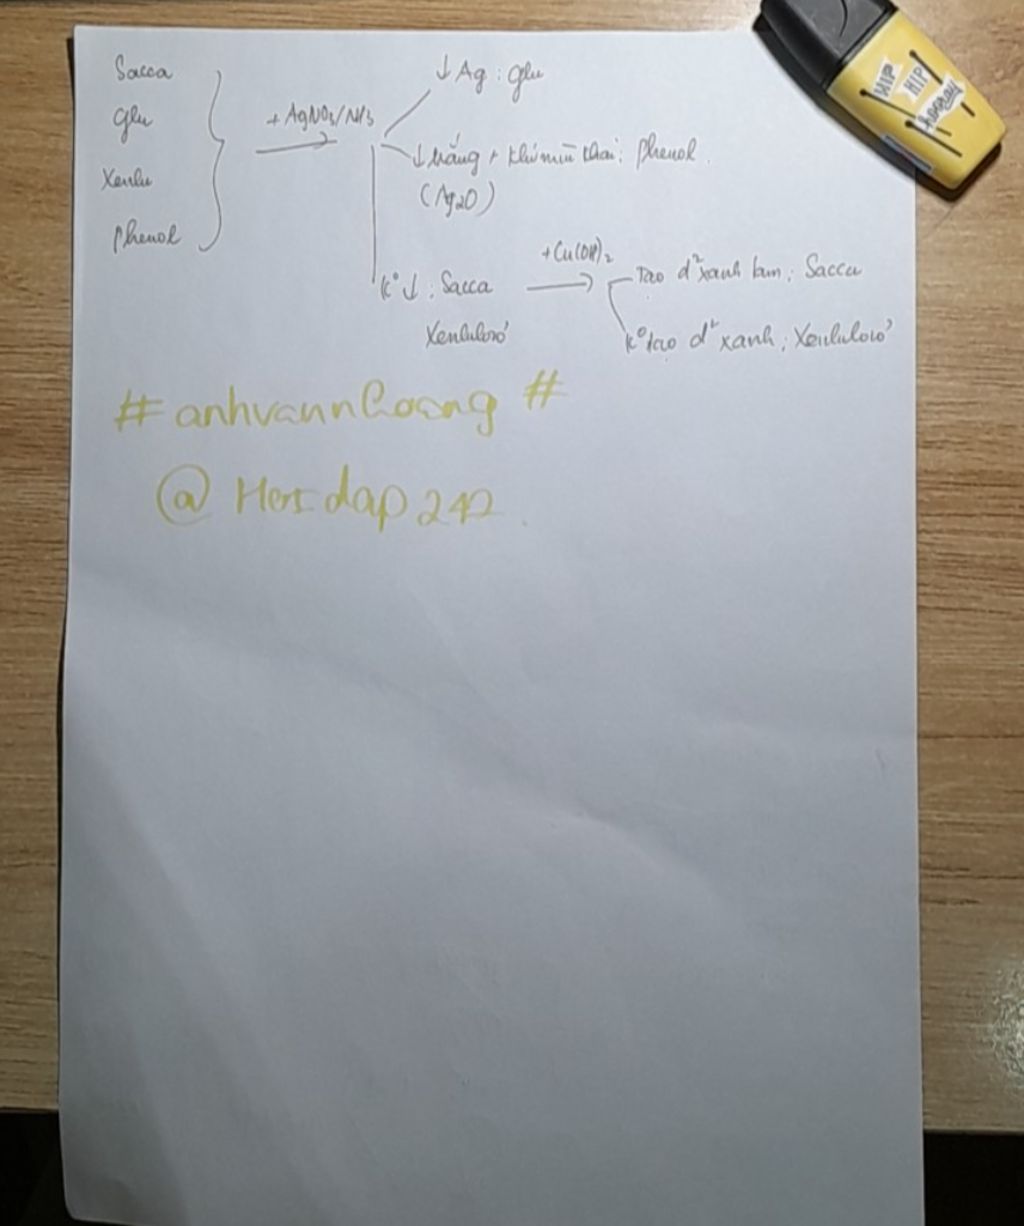 Sacca
Glu
Xenlu
Phenol
+ AgNO3/NH3
↓ Ag : Glu
↓ trắng + khí mùi khai : Phenol.
(Ag2O)
k° ↓ : Sacca
Xenlulozơ
+ Cu(OH)2
Tạo d² xanh lam : Sacca
k° tạo d² xanh : Xenlulozơ
# anhvannhoang #
@ Hoidap247.
HIP
HIP
hooray